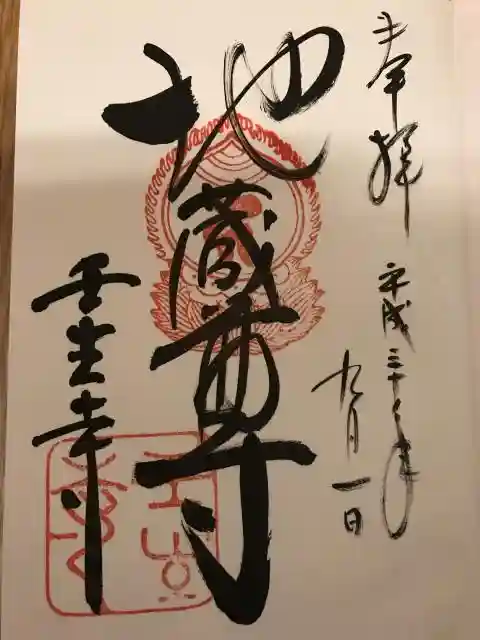 奉拝
平成三十年
九月一日
地蔵尊
壬生寺